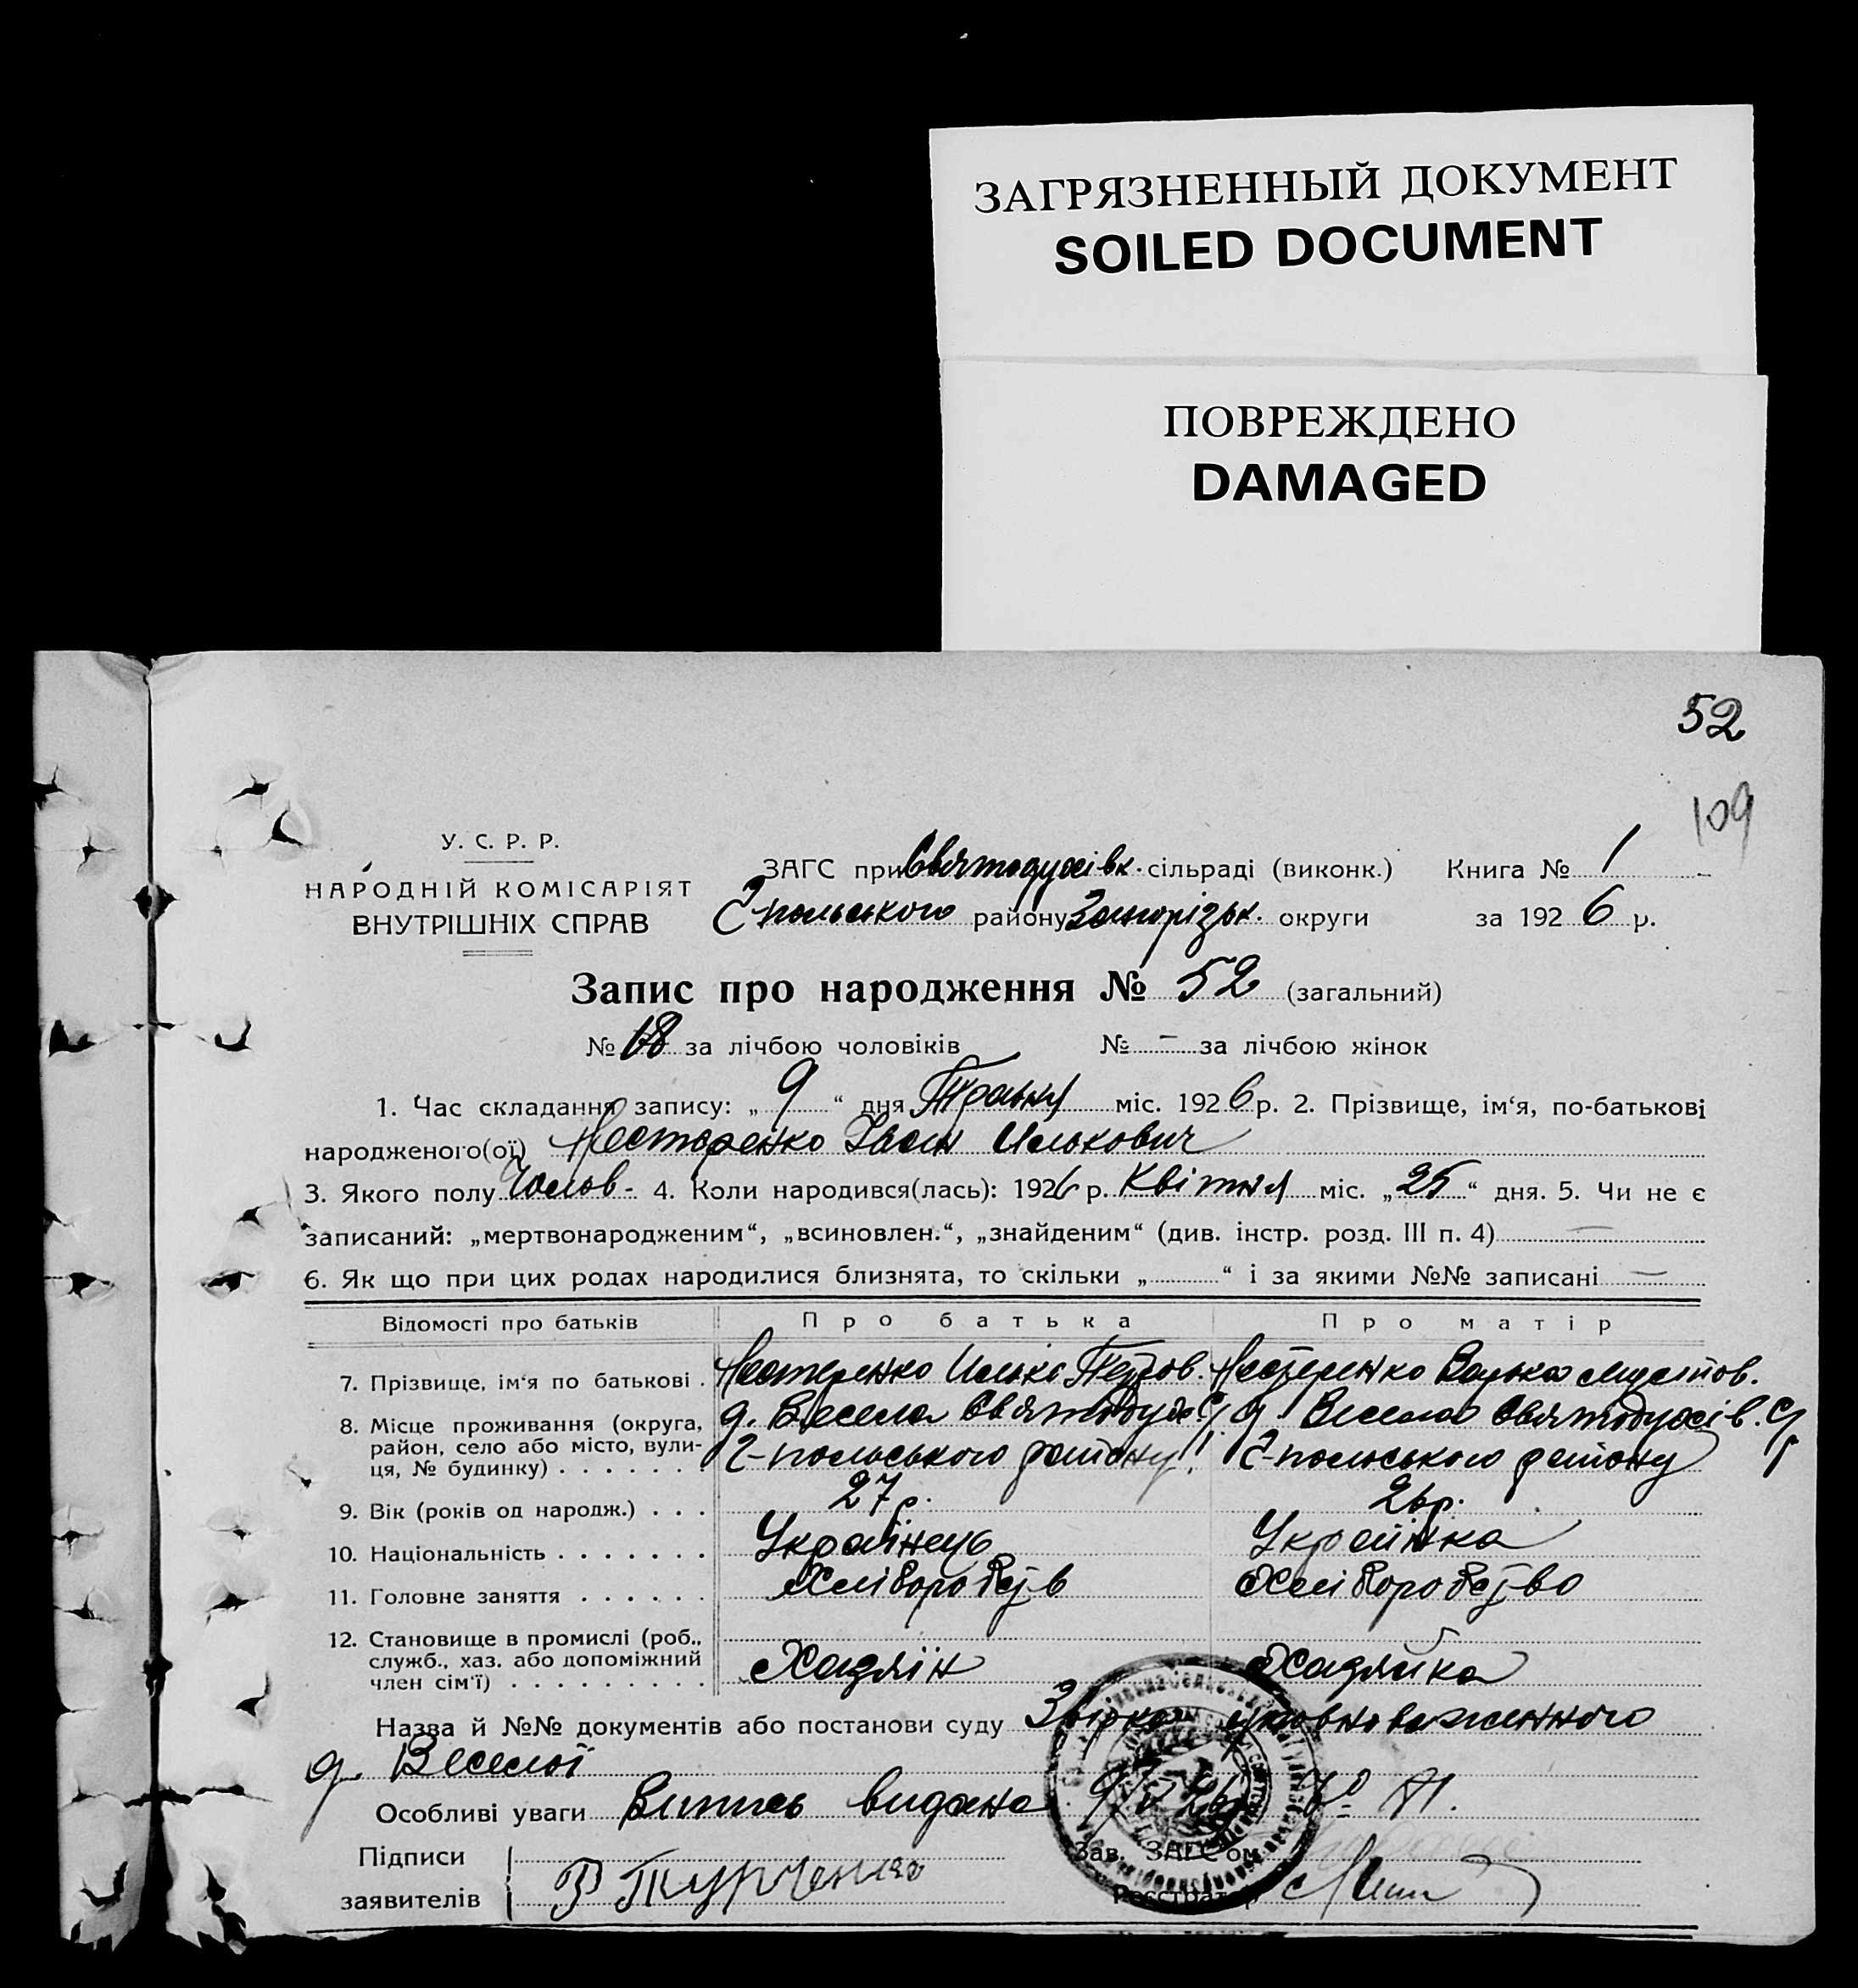 ЗАГРЯЗНЕННЫЙ ДОКУМЕНТ
SOILED DOCUMENT
ПОВРЕЖДЕНО
DAMAGED
52
109
У. С. Р. Р.
НАРОДНІЙ КОМІСАРІЯТ
ВНУТРІШНІХ СПРАВ
ЗАГС при Святодухівк. сільраді (виконк.) Книга № 1
польського району Запорізьк. округи за 1926 р.
Запис про народження № 52 (загальний)
№ 18 за лічбою чоловіків № - за лічбою жінок
1. Час складання запису: „ 9 “ дня Травня міс. 1926 р. 2. Прізвище, ім‘я, по-батькові
народженого(ої) Нестеренко Іван Илькович
3. Якого полу Чолов- 4. Коли народився(лась): 1926 р. Квітня міс. „ 25 “ дня. 5. Чи не є
записаний: „мертвонародженим“, „всиновлен.“, „знайденим“ (див. інстр. розд. III п. 4) —
6. Як що при цих родах народилися близнята, то скільки „ “ і за якими №№ записані —
Відомості про батьків Про батька Про матір
7. Прізвище, ім‘я по батькові . Нестеренко Илько Петров. Нестеренко
8. Місце проживання (округа, д. Весела Святодух д. Весела Святодухів.
район, село або місто, вули- польського району польського району
ця, № будинку) . . . . . . .
9. Вік (років од народж.) . . . 27 р. 26 р.
10. Національність . . . . . . . Українець Українка
11. Головне заняття . . . . . . Хліборобств Хліборобство
12. Становище в промислі (роб.,
служб., хаз. або допоміжний Хазяїн Хазяйка
член сім‘ї) . . . . . . . . .
Назва й №№ документів або постанови суду уповноваженного
д. Веселої
Особливі уваги Випись видана
Підписи Зав. ЗАГС‘ом
заявителів Турченко Реєстратор